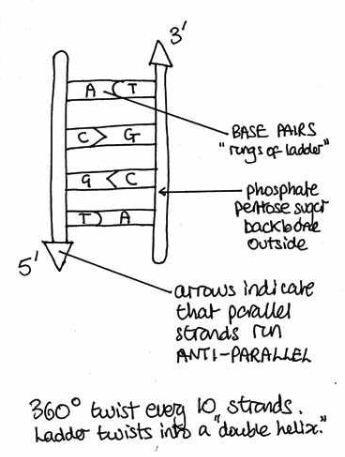 3'
A T
BASE PAIRS
"rungs of ladder"
C G
G C
phosphate
pentose sugar
backbone
outside
T A
5'
arrows indicate
that parallel
strands run
ANTI-PARALLEL
360° twist every 10 strands.
Ladder twists into a "double helix."